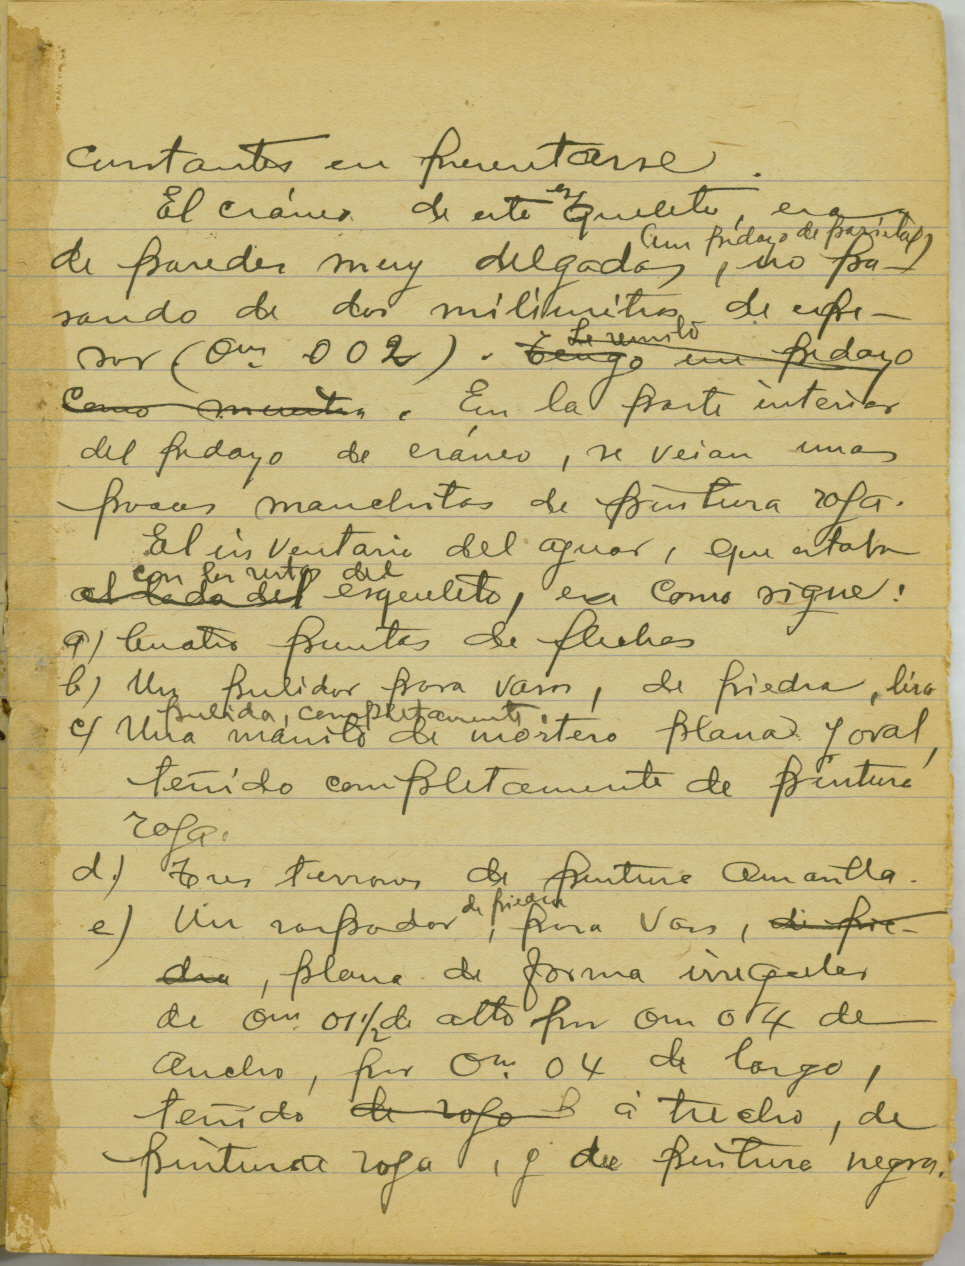 constantes en presentarse.
El cráneo de este esqueleto, era
(un pedazo de parietal)
de paredes muy delgadas, no pa-
sando de dos milímetros de espe-
sor (0m. 002). Tengo un pedazo
Se remitió
como muestra. En la parte interior
del pedazo de cráneo, se veian unas
pocas manchitas de pintura roja.
El inventario del ajuar, que estaba
con los restos del
al lado del esqueleto, era como sigue:
a) Cuatro puntas de flechas
b) Un pulidor para vasos, de piedra, liso
pulida, completamente
c) Una manito de mortero plana y oval,
teñido completamente de pintura
roja.
d.) Tres terrones de pintura amarilla.
de piedra
e) Un raspador, para vaso, de pie-
dra, plana de forma irregular
de 0m. 01½ de alto por 0m 04 de
ancho, por 0m. 04 de largo,
teñido de rojo á trecho, de
pintura roja, y de pintura negra.